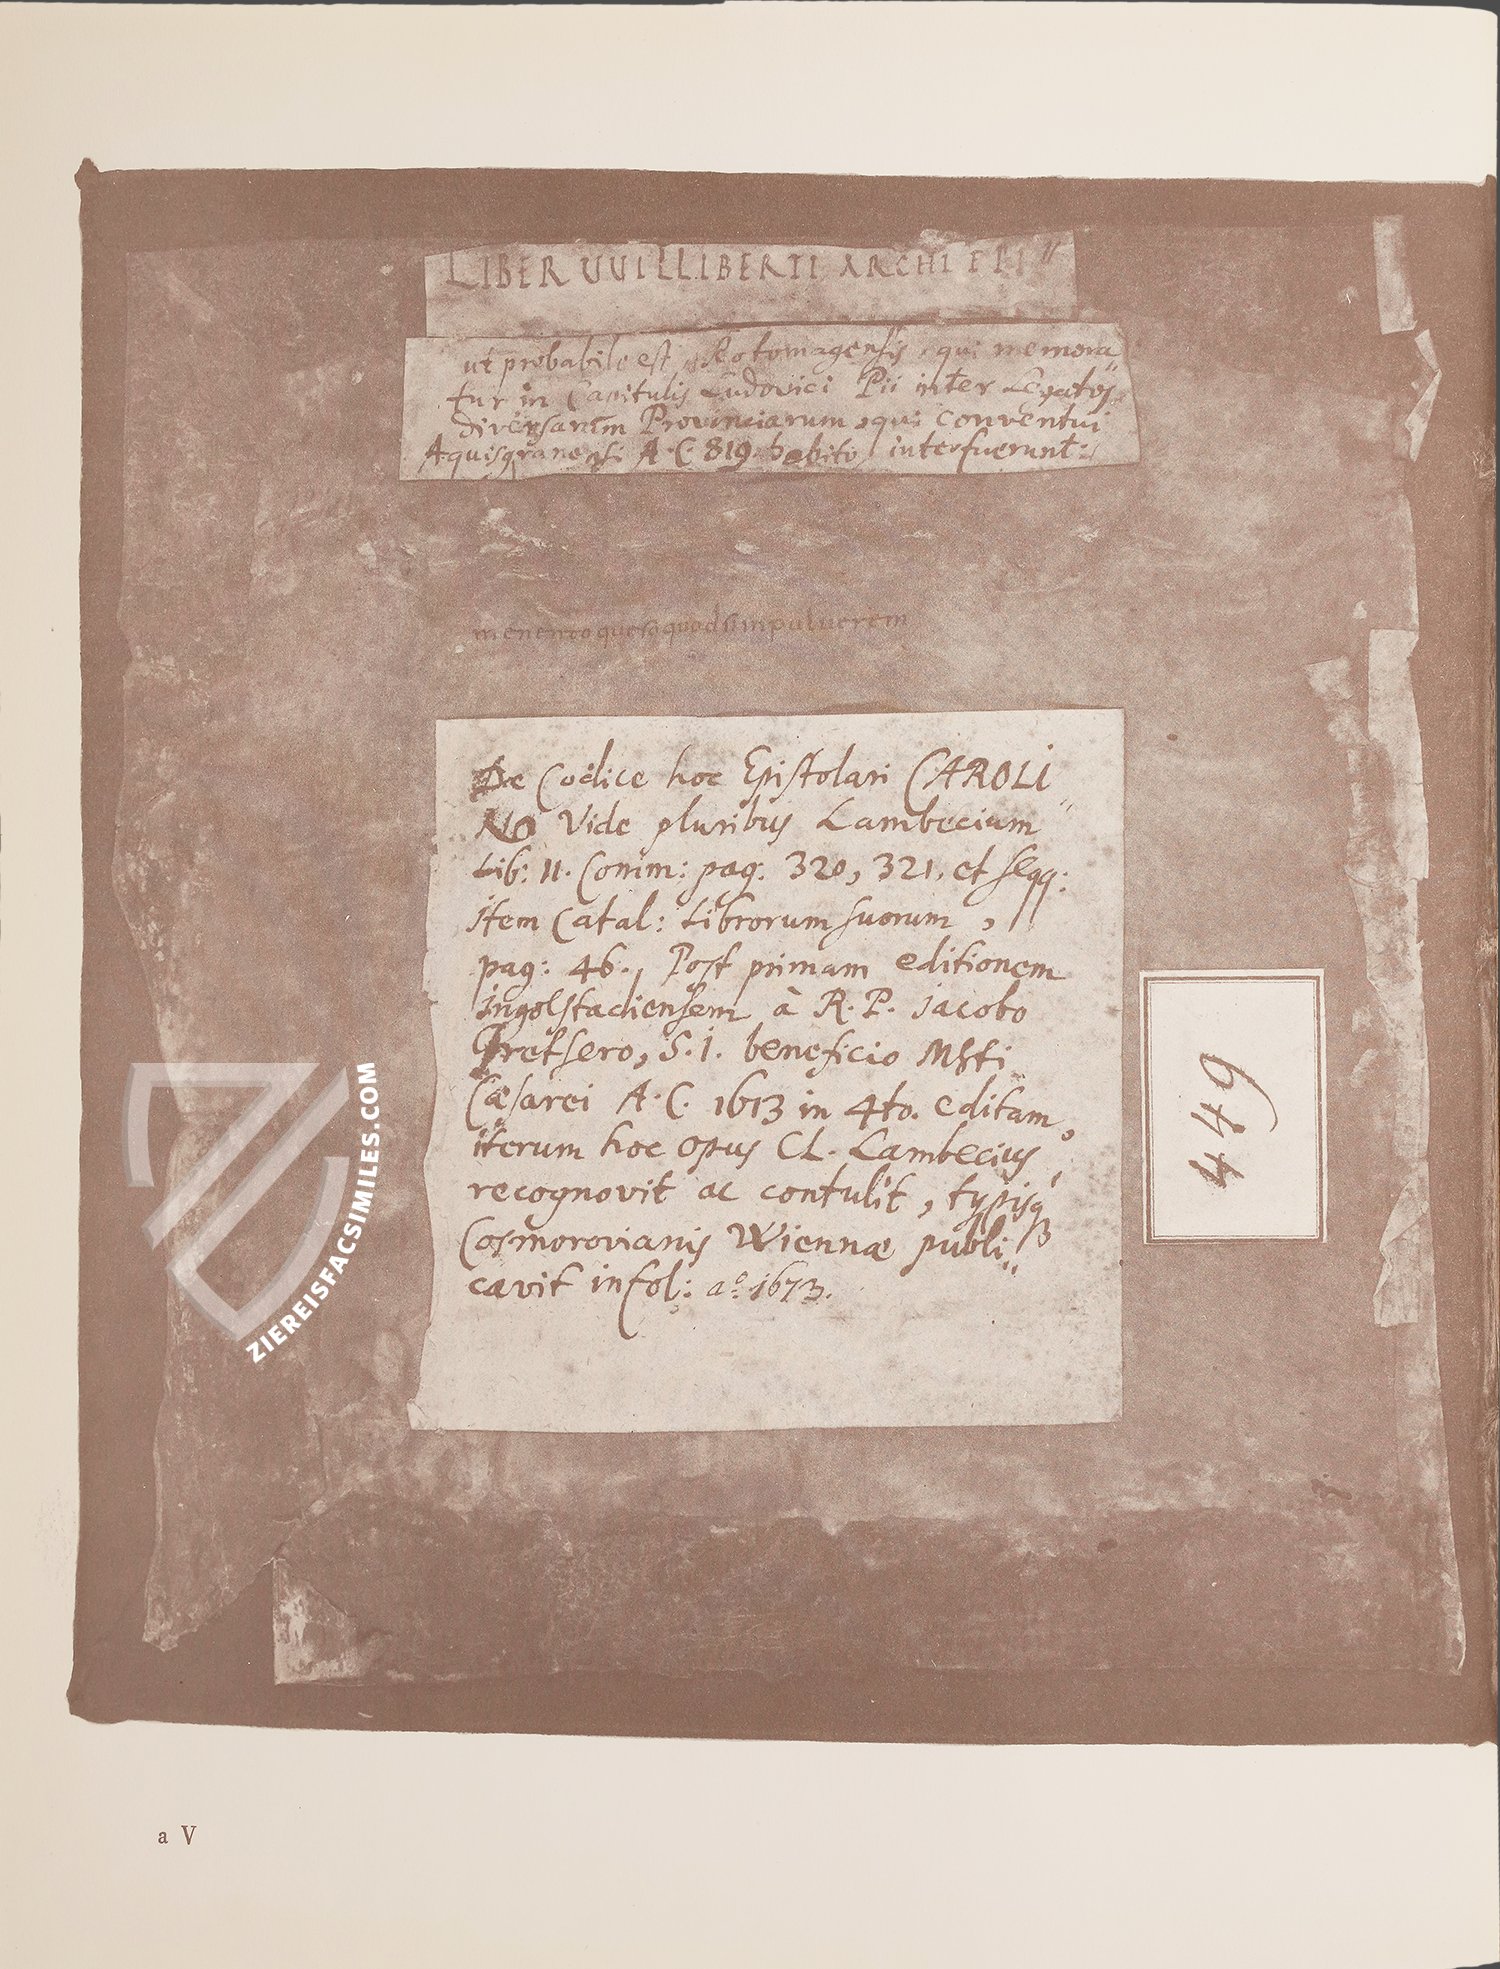 LIBER VVILLIBERTI ARCHI EPI"
ut probabile est, Rotomagensis, qui memora"
tur in Capitulis Ludovici Pii inter Legatos
diversarum Provinciarum, qui conventui
Aquisgranensi A. C. 819. habito interfuerunt:
quod sim pulverem
De Codice hoc Epistolari CAROLI"
NO Vide pluribus Lambecium
Lib: II. Comm: pag: 320, 321, et seqq:
item Catal: Librorum suorum,
pag: 46., Post primam editionem
ingolstadiensem à R. P. Jacobo
Gretsero, S. I. beneficio Msti
Cæsarei A. C. 1613 in 4to. editam,
iterum hoc opus CL. Lambecius,
recognovit ac contulit, typisqꝫ
Cosmorovianis Wiennæ publi"
cavit in fol: aº. 1673.
449
ZIEREISFACSIMILES.COM
a V